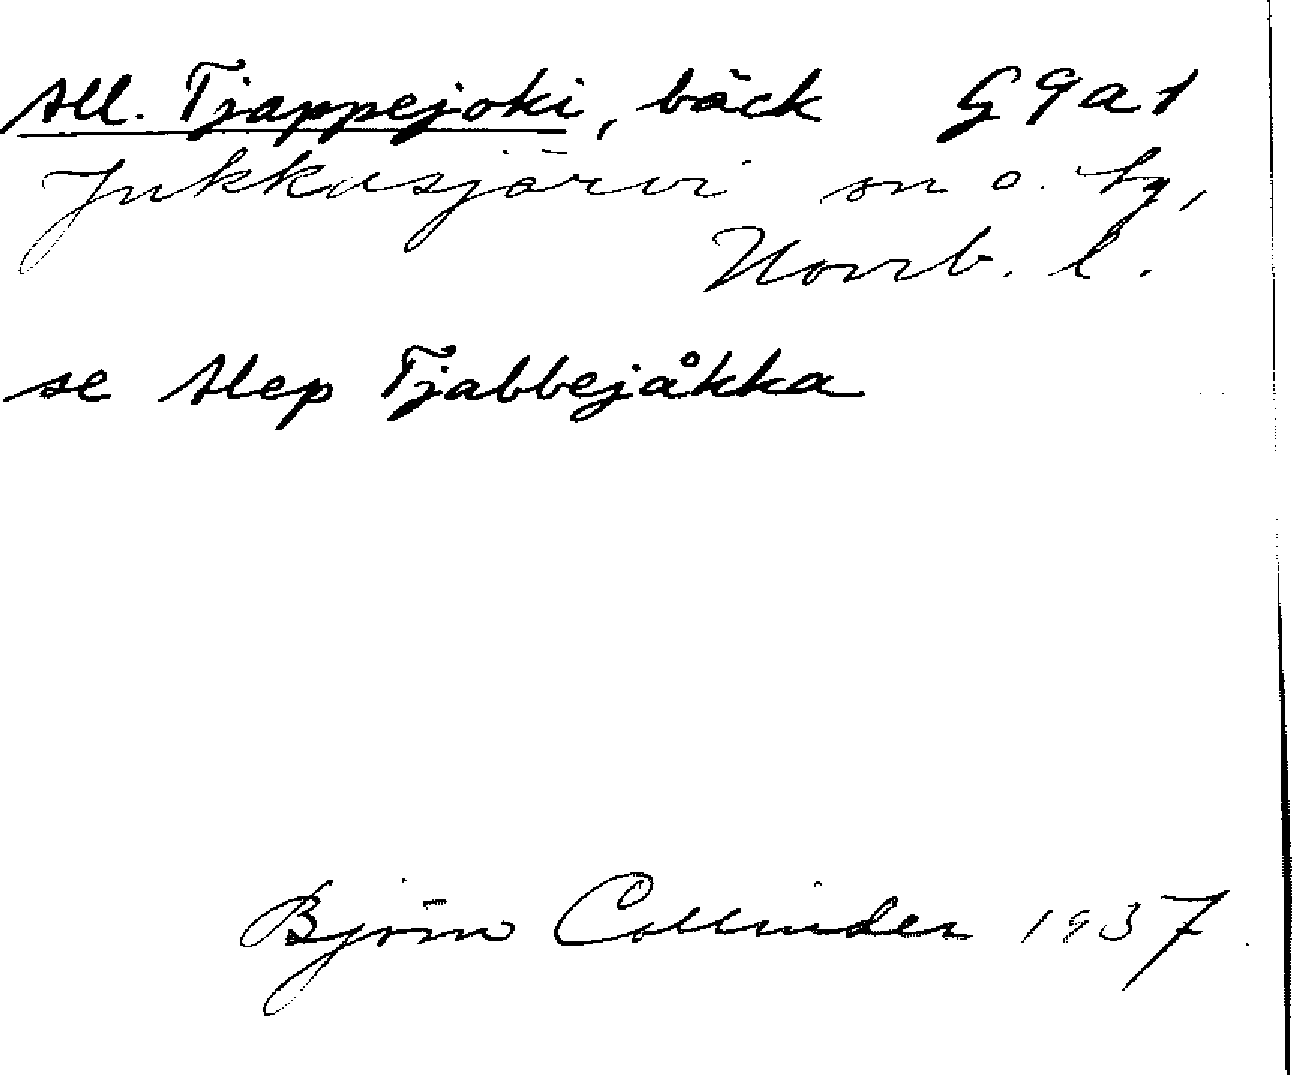 All. Tjappejoki, bäck G9a1
Jukkasjärvi sn o. tg,
Norrb. l.
se Alep Tjabbejåkka
Björn Collinder 1937